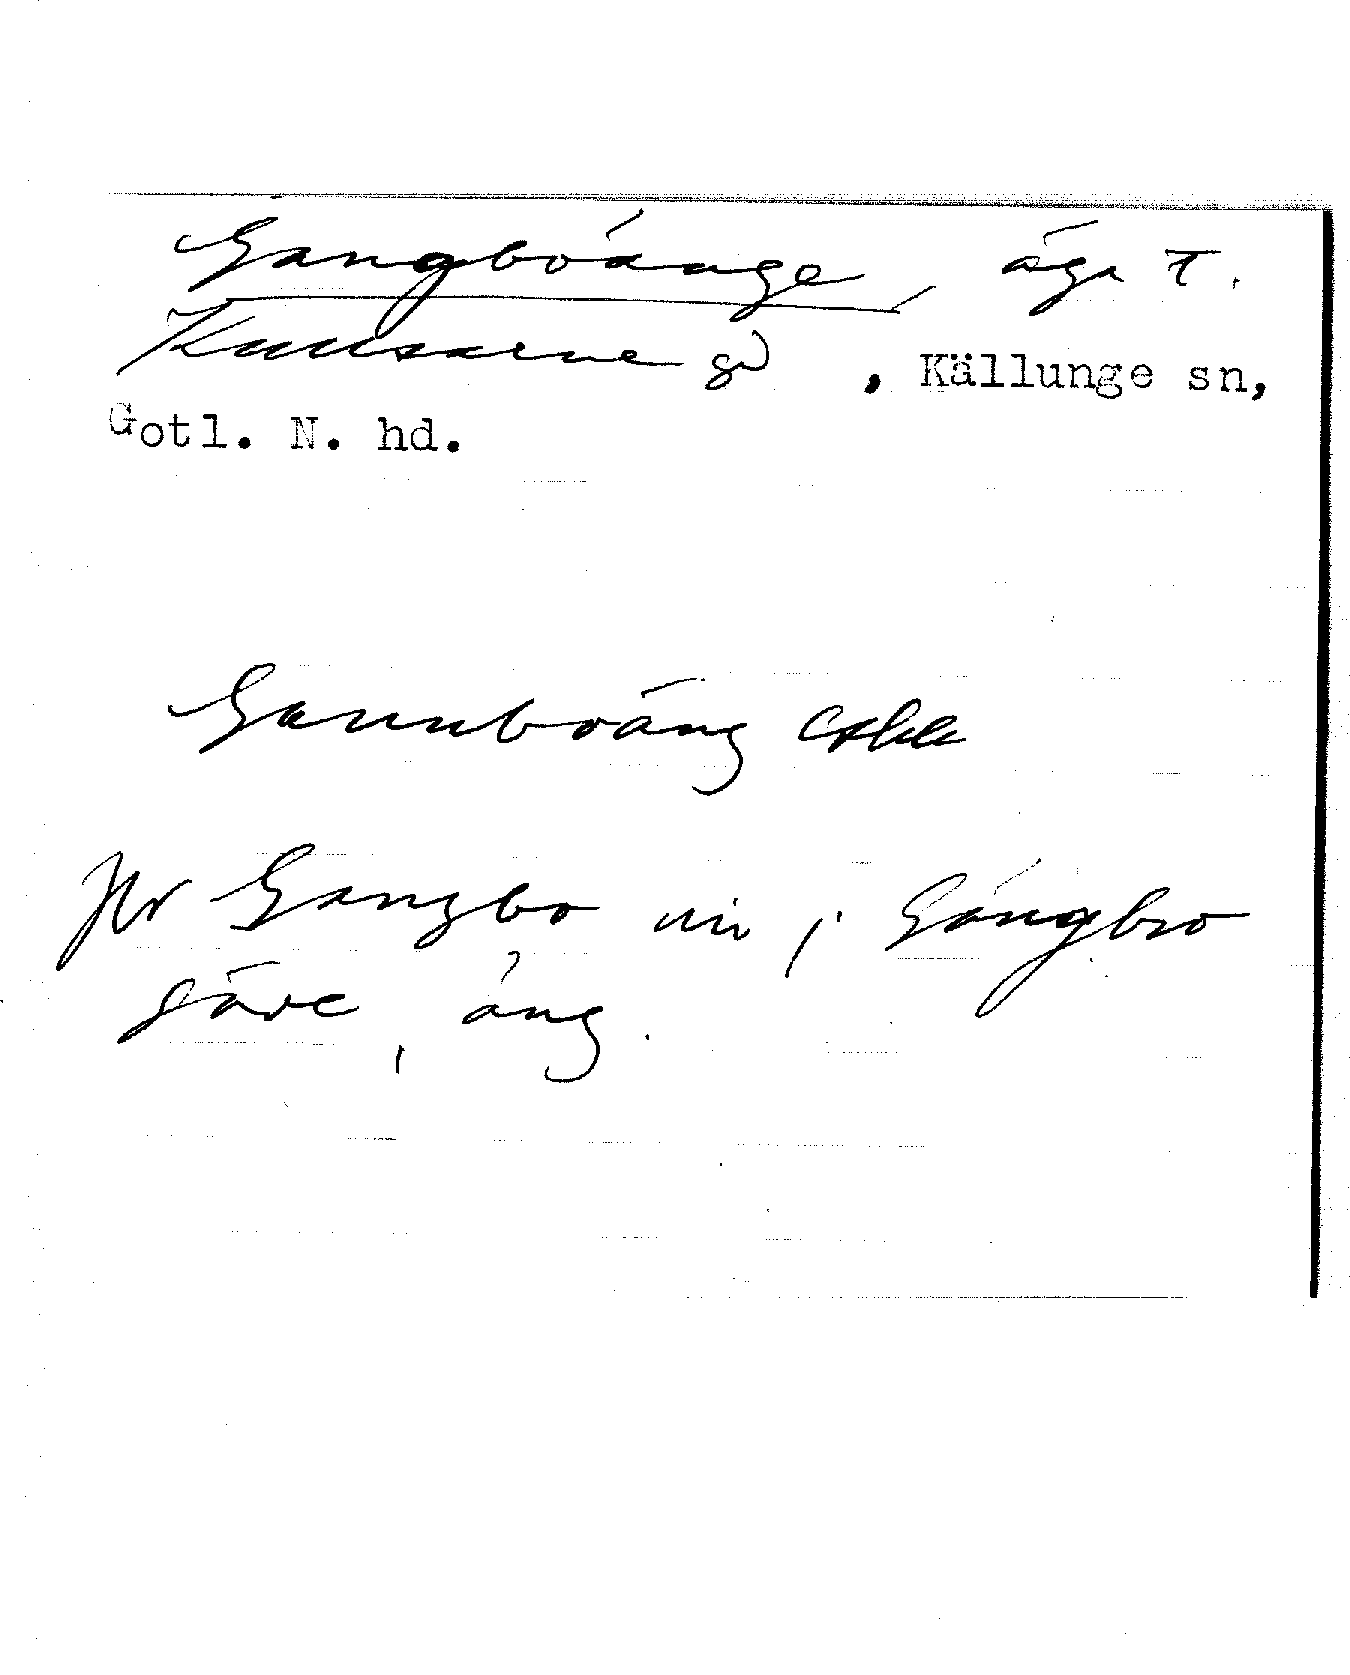 Gangboänge, äga t.
Knutsarne gd, Källunge sn,
Gotl. N. hd.
Gannboäng
Jfr Gangbo vin; Gångbro
göve, äng.